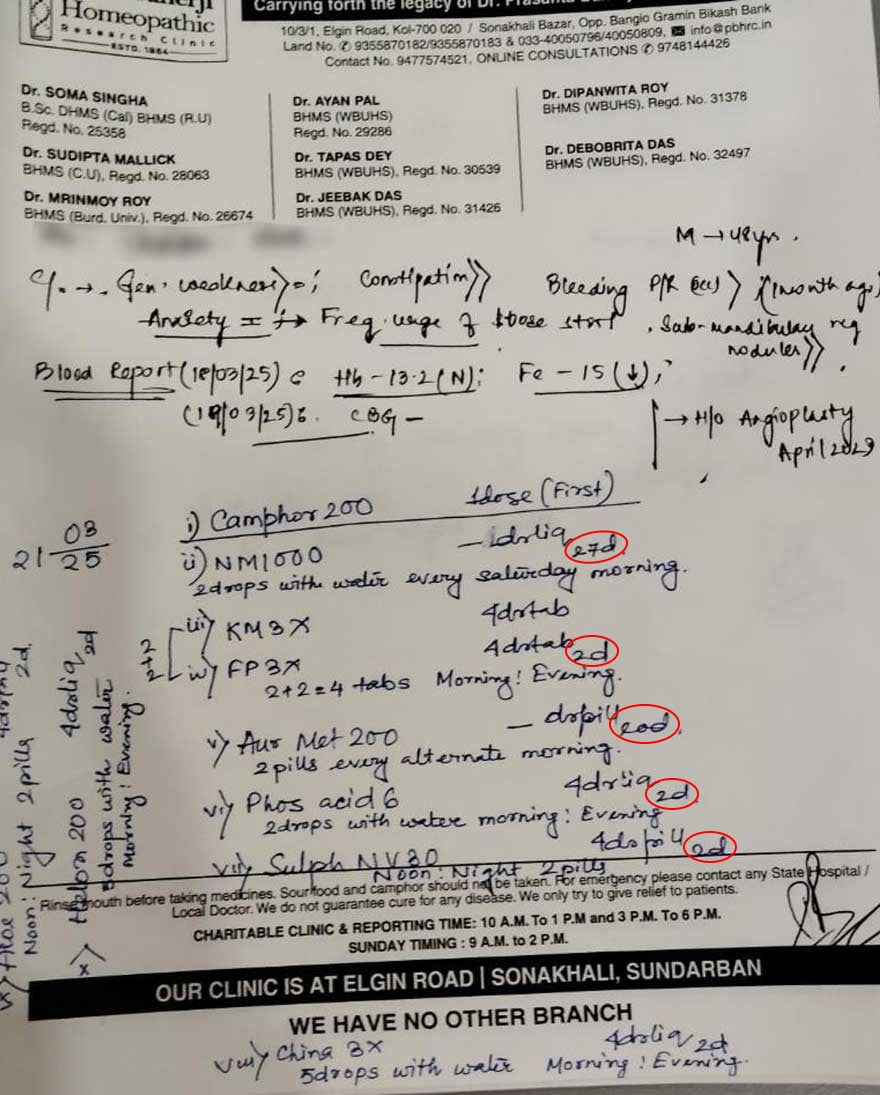 Homeopathic
Research Clinic
ESTD. 1864
Carrying forth the legacy of Dr.
10/3/1, Elgin Road, Kol-700 020 / Sonakhali Bazar, Opp. Bangio Gramin Bikash Bank
Land No. ✆ 9355870182/9355870183 & 033-40050796/40050809, ✉ info@pbhrc.in
Contact No. 9477574521, ONLINE CONSULTATIONS ✆ 9748144426
Dr. SOMA SINGHA
B.Sc. DHMS (Cal) BHMS (R.U)
Regd. No. 25358
Dr. SUDIPTA MALLICK
BHMS (C.U), Regd. No. 28063
Dr. MRINMOY ROY
BHMS (Burd. Univ.), Regd. No. 26674
Dr. AYAN PAL
BHMS (WBUHS)
Regd. No. 29286
Dr. TAPAS DEY
BHMS (WBUHS), Regd. No. 30539
Dr. JEEBAK DAS
BHMS (WBUHS), Regd. No. 31426
Dr. DIPANWITA ROY
BHMS (WBUHS), Regd. No. 31378
Dr. DEBOBRITA DAS
BHMS (WBUHS), Regd. No. 32497
M → 48 yrs.
Gen. weakness Constipation>> Bleeding P/R (occ) > (1 month ago)
Anxiety Freq. urge of Sub-mandibular reg
nodules>>
Blood Report (18/03/25) Hb - 13.2 (N); Fe - 15 (↓);
(19/03/25) CBG -
→ H/O Angioplasty
April 2023
21 03/25
i) Camphor 200 1dose (First)
ii) NM1000 - 1drliq 27d
2drops with water every saturday morning.
iii) KM 3X 4drtab
2+2
iv) FP 3X 4drtab 2d
2+2=4 tabs Morning! Evening.
v) Aur Met 200 - drpill 20d.
2 pills every alternate morning.
vi) Phos acid 6 4drliq 2d
2drops with water morning! Evening
vii) Sulph NV30 4drpill 2d
Noon! Night 2pills
Rinse mouth before taking medicines. Sour food and camphor should not be taken. For emergency please contact any State Hospital /
Local Doctor. We do not guarantee cure for any disease. We only try to give relief to patients.
CHARITABLE CLINIC & REPORTING TIME: 10 A.M. To 1 P.M and 3 P.M. To 6 P.M.
SUNDAY TIMING : 9 A.M. to 2 P.M.
OUR CLINIC IS AT ELGIN ROAD | SONAKHALI, SUNDARBAN
WE HAVE NO OTHER BRANCH
viii) China 3X 4drliq 2d
5drops with water Morning! Evening.
ix) Aloe 200 4drpill 2d.
Noon! Night 2pills
x) 200 4drliq 2d
5drops with water
Morning! Evening.